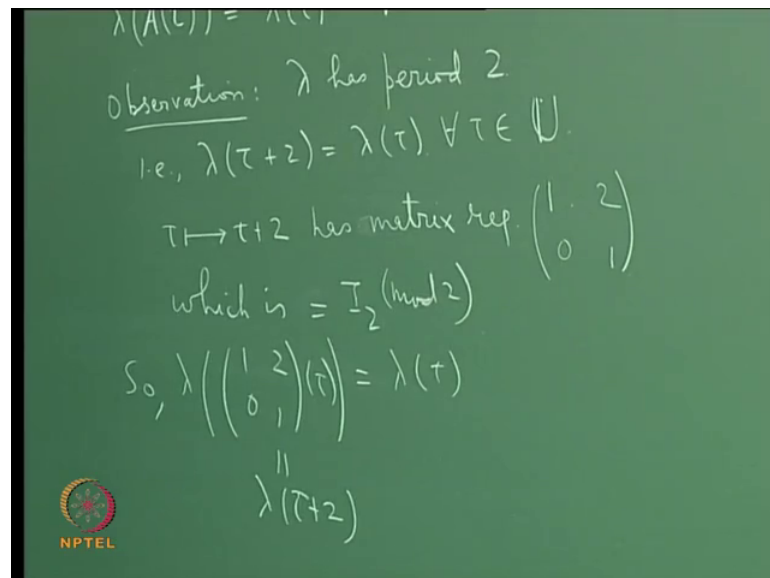 λ(A(τ)) = λ(τ)
Observation: λ has period 2.
i.e., λ(τ+2) = λ(τ) ∀ τ ∈ U.
τ ↦ τ+2 has matrix rep. (1 2
0 1)
which is = I₂ (mod 2)
So, λ((1 2
0 1)(τ)) = λ(τ)
||
λ(τ+2)
NPTEL